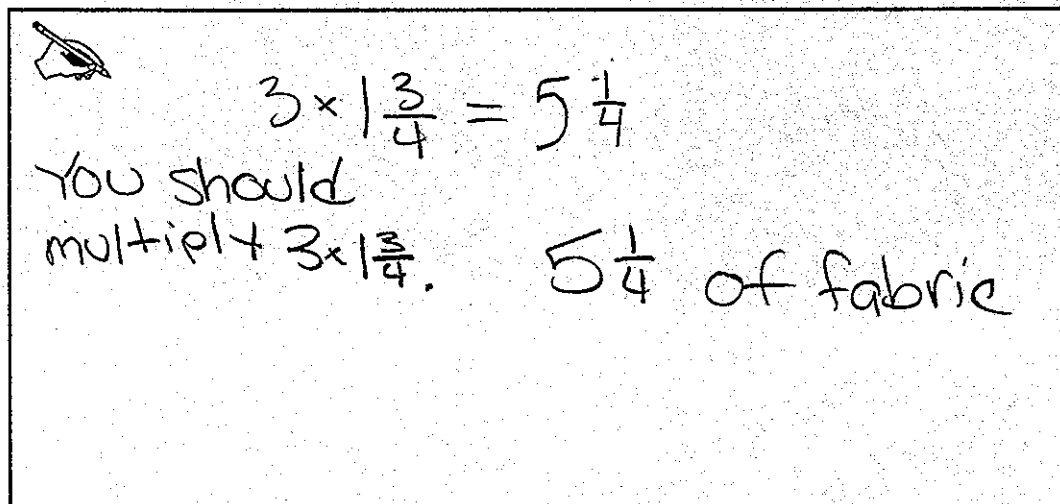 3 × 1 3/4 = 5 1/4
You should
multiply 3 × 1 3/4.
5 1/4 of fabric